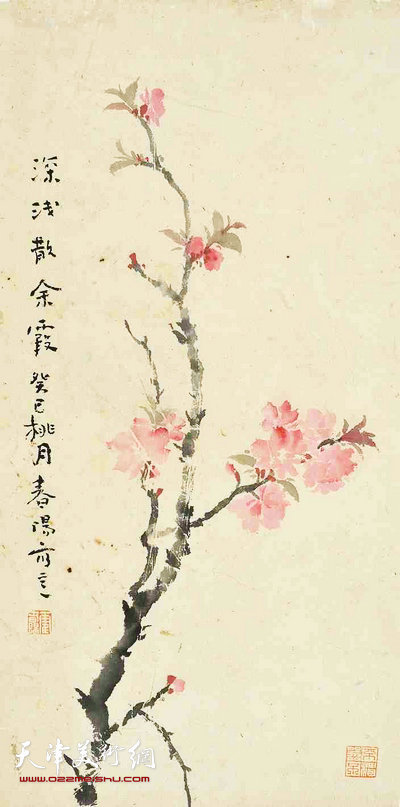 深浅散余霞癸巳桃月春陽写之
天津美術網
www.022meishu.com